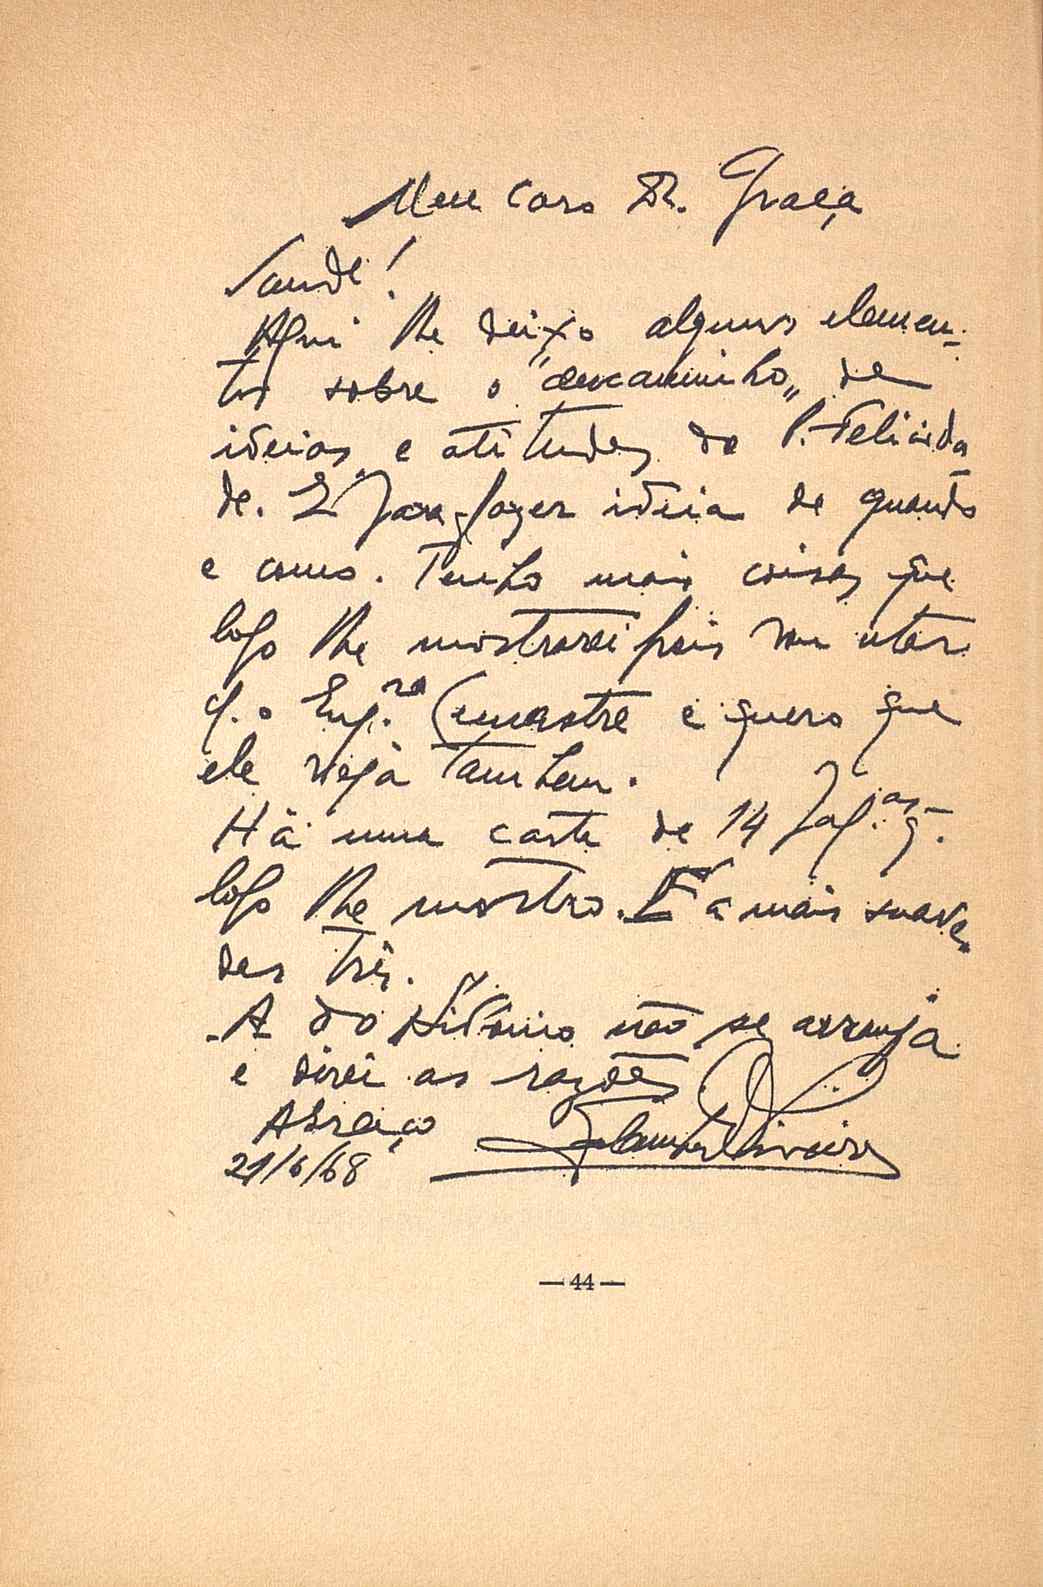 Meu caro Dr. Graça
Saude!
Aqui lhe deixo alguns elemen-
tos sobre o "descaminho" de
ideias e atitudes do P. Felicida-
de. É para fazer ideia de quando
e como. Tenho mais coisas que
logo lhe mostrarei pois vou estar
c. o Eng.ro e quero que
ele veja tambem.
Há uma carta de 14 pág.as q.
logo lhe mostro. É a mais suave
das três.
A do não se arranja
e direi as razões.
Abraço Oliveira
21/6/68
— 44 —